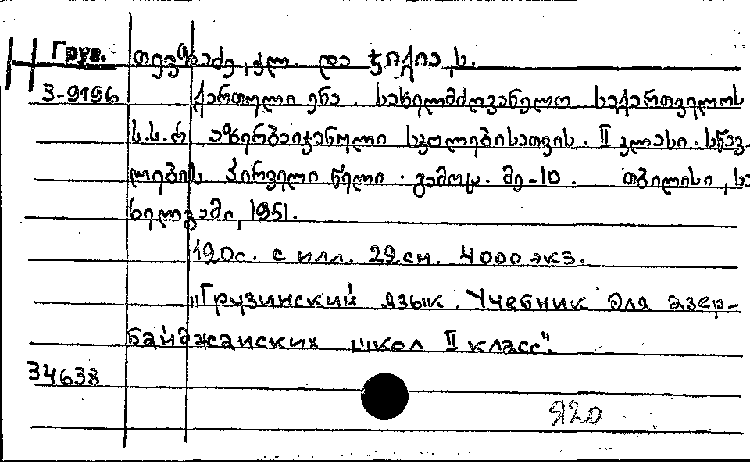 Груз. თევზაძე, ელ. და ჯიქია, ს.
3-9196 ქართული ენა. სახელმძღვანელო საქართველოს
ს.ს.რ აზერბაიჯანული სკოლებისათვის. II კლასი. სწავ-
ლების პირველი წელი. გამოც. მე-10. თბილისი, სა
ხელგამი, 1951.
120с. с илл. 22 см. 4000 экз.
"Грузинский язык. Учебник для азер-
байджанских школ II класс".
34638
Я20